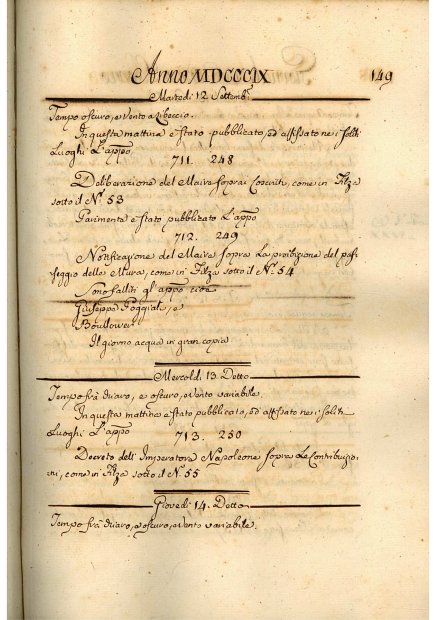 Anno MDCCCIX
149
Martedì 12 Settemb.
Tempo oscuro, e Vento a Libeccio.
In questa mattina è stato pubblicato, ed affissato ne i soliti
Luoghi L'app.o
711. 248
Deliberazione del Maire sopra i Coscritti, come in Filza
sotto il N.o 53
Parimente è stato pubblicato L'app.o
712. 249
Notificazione del Maire sopra La proibizione del pas
seggio delle Mura, come in Filza sotto il N.o 54
Sono falliti gl'app.o cioè
Giuseppe Poggiali, e
Boullower
Il giorno acqua in gran copia
Mercoldì 13. Detto
Tempo frà chiaro, e oscuro, e Vento variabile.
In questa mattina è stato pubblicato, ed affissato ne i soliti
Luoghi L'app.o
713. 250
Decreto dell'Imperatore Napoleone sopra Le Contribuzio,
ni, come in Filza sotto il N.o 55
Giovedì 14. Detto
Tempo frà chiaro, e oscuro, e Vento variabile.